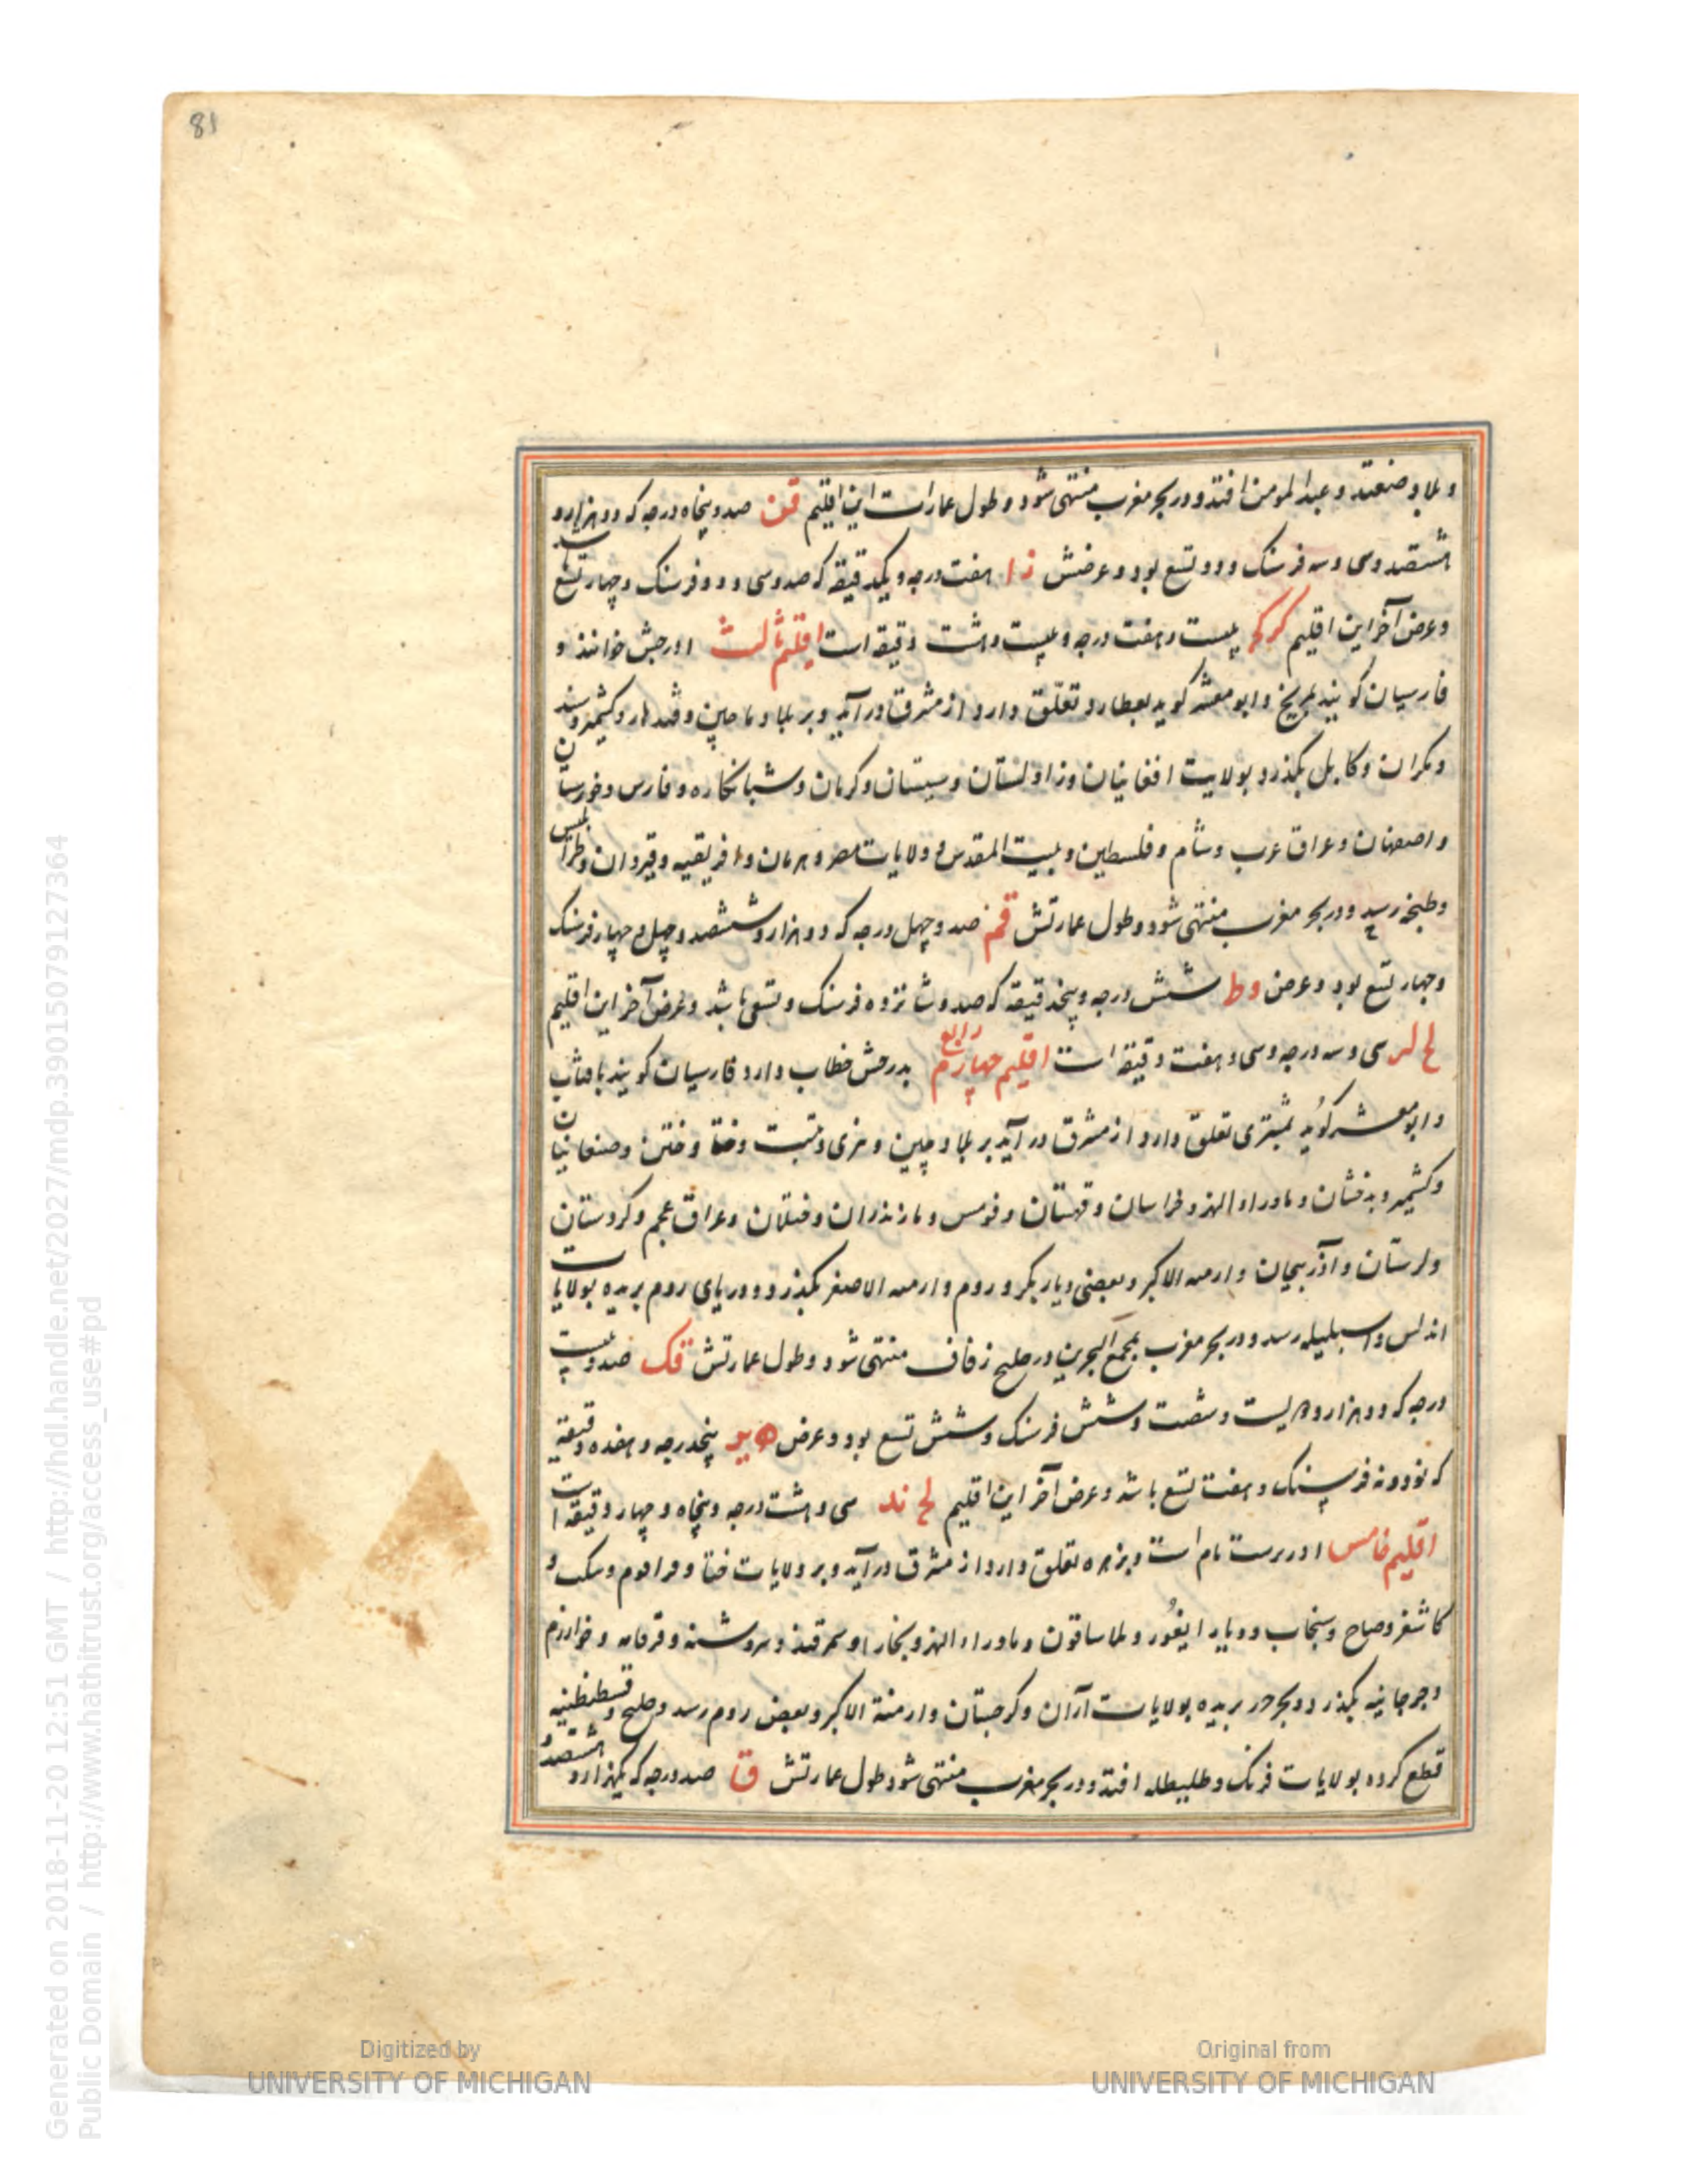 81
و بلاد صنعتد و عبدالمومن افتد و در بحر مغرب منتهی شود و طول عمارات این اقلیم قن صد و پنجاه درجه که دو هزار و
هشتصد و سی و سه فرسنک و دو تسع بود و عرضش زا هفت درجه و یکدقیقه که صد و سی و دو فرسنک و چهار تسع
و عرض آخر این اقلیم بیست و هفت درجه و بیست و هشت دقیقه است اقلیم ثالث اورحبش خوانند و
فارسیان کویند بمریخ و ابو معشر کوید بعطارد تعلّق دارد از مشرق درآید و بر بلاد ماچین و قندهار و کشمیر و سند
و مکران و کابل بگذرد بولایت افغانیان و زاولستان و سیستان و کرمان و شبانکاره و فارس و خوزستان
و اصفهان و عراق عرب و شام و فلسطین و بیت المقدس و ولایات مصر و هرمان و افریقیه و قیروان و طرابلس
و طنجه رسد و در بحر مغرب منتهی شود و طول عمارتش قم صد و چهل درجه که دو هزار و ششصد و چهل و چهار فرسنک
و چهار تسع بود و عرض وط شش درجه و پنج دقیقه که صد و شانزده فرسنک و تسعی باشد و عرض آخر این اقلیم
لج لز سی و سه درجه و سی و هفت دقیقه است اقلیم چهارم رابع بدرحش خطاب دارد فارسیان کویند بافتاب
و ابو معشر کوید بمشتری تعلق دارد از مشرق درآید بر بلاد چین و تبت و ختا و ختن و صنعانیان
و کشمیر و بدخشان و ماوراء النهر و خراسان و قهستان و قومس و مازندران و ختلان و عراق عجم و کردستان
و لرستان و آذربیجان و ارمنه الاکبر و بعضی دیار بکر و روم و ارمنه الاصغر بگذرد و دریای روم بریده بولایات
اندلس و اسبلیله رسد و در بحر مغرب بمجمع البحرین در خلیج زقاف منتهی شود و طول عمارتش قک صد و بیست
درجه که دو هزار و دویست و شصت و شش فرسنک و شش تسع بود و عرض ه یز پنجدرجه و هفده دقیقه
که نود و نه فرسنک و هفت تسع باشد و عرض آخر این اقلیم لح ند سی و هشت درجه و پنجاه و چهار دقیقه است
اقلیم خامس اوررست نام است و بزهره تعلق دارد از مشرق درآید و بر ولایات ختا و قراقوم و
کاشغر و سنجاب و دیار ایغور و بلاساقون و ماوراء النهر و بخارا و سمرقند و سروشنه و فرغانه و خوارزم
و جرجانیه بگذرد و بحر خزر بریده بولایات آران و کرجستان و ارمنة الاکبر و بعض روم رسد و خلیج قسطنطنیه
قطع کرده بولایات فرنک و طلیطله افتد و در بحر مغرب منتهی شود طول عمارتش ق صد درجه که یکهزار و هشتصد
Generated on 2018-11-20 12:51 GMT / http://hdl.handle.net/2027/mdp.39015079127364
Public Domain / http://www.hathitrust.org/access_use#pd
Digitized by
UNIVERSITY OF MICHIGAN
Original from
UNIVERSITY OF MICHIGAN